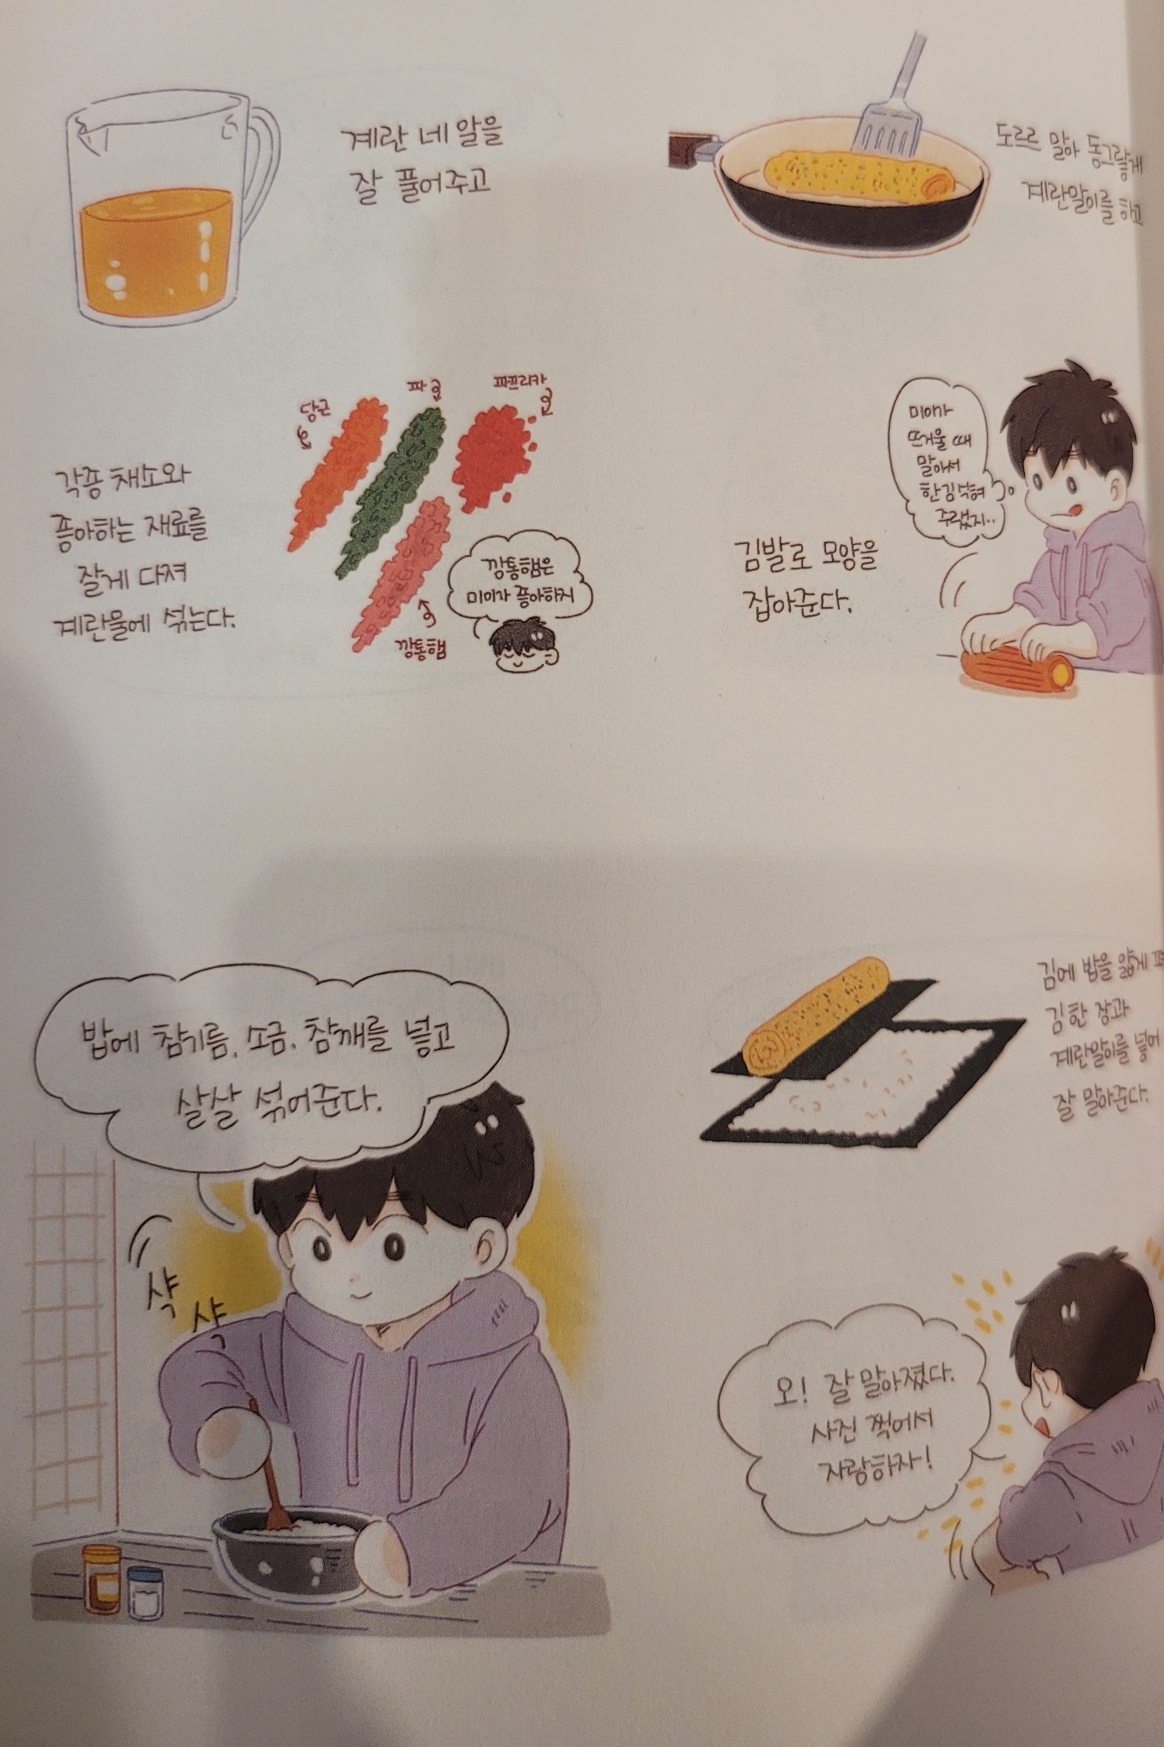 계란 네 알을
잘 풀어주고
당근
파
파프리카
각종 채소와
좋아하는 재료를
잘게 다져
계란물에 섞는다.
깡통햄은
미미가 좋아하지
깡통햄
밥에 참기름, 소금, 참깨를 넣고
살살 섞어준다.
샥
샥
도르르 말아 동그랗게
계란말이를 하고
미미가
뜨거울 때
말아서
한김 식혀
주랬지..
김발로 모양을
잡아준다.
김에 밥을 얇게
김 한 장과
계란말이를 넣어
잘 말아준다.
오! 잘 말아졌다.
사진 찍어서
자랑하자!